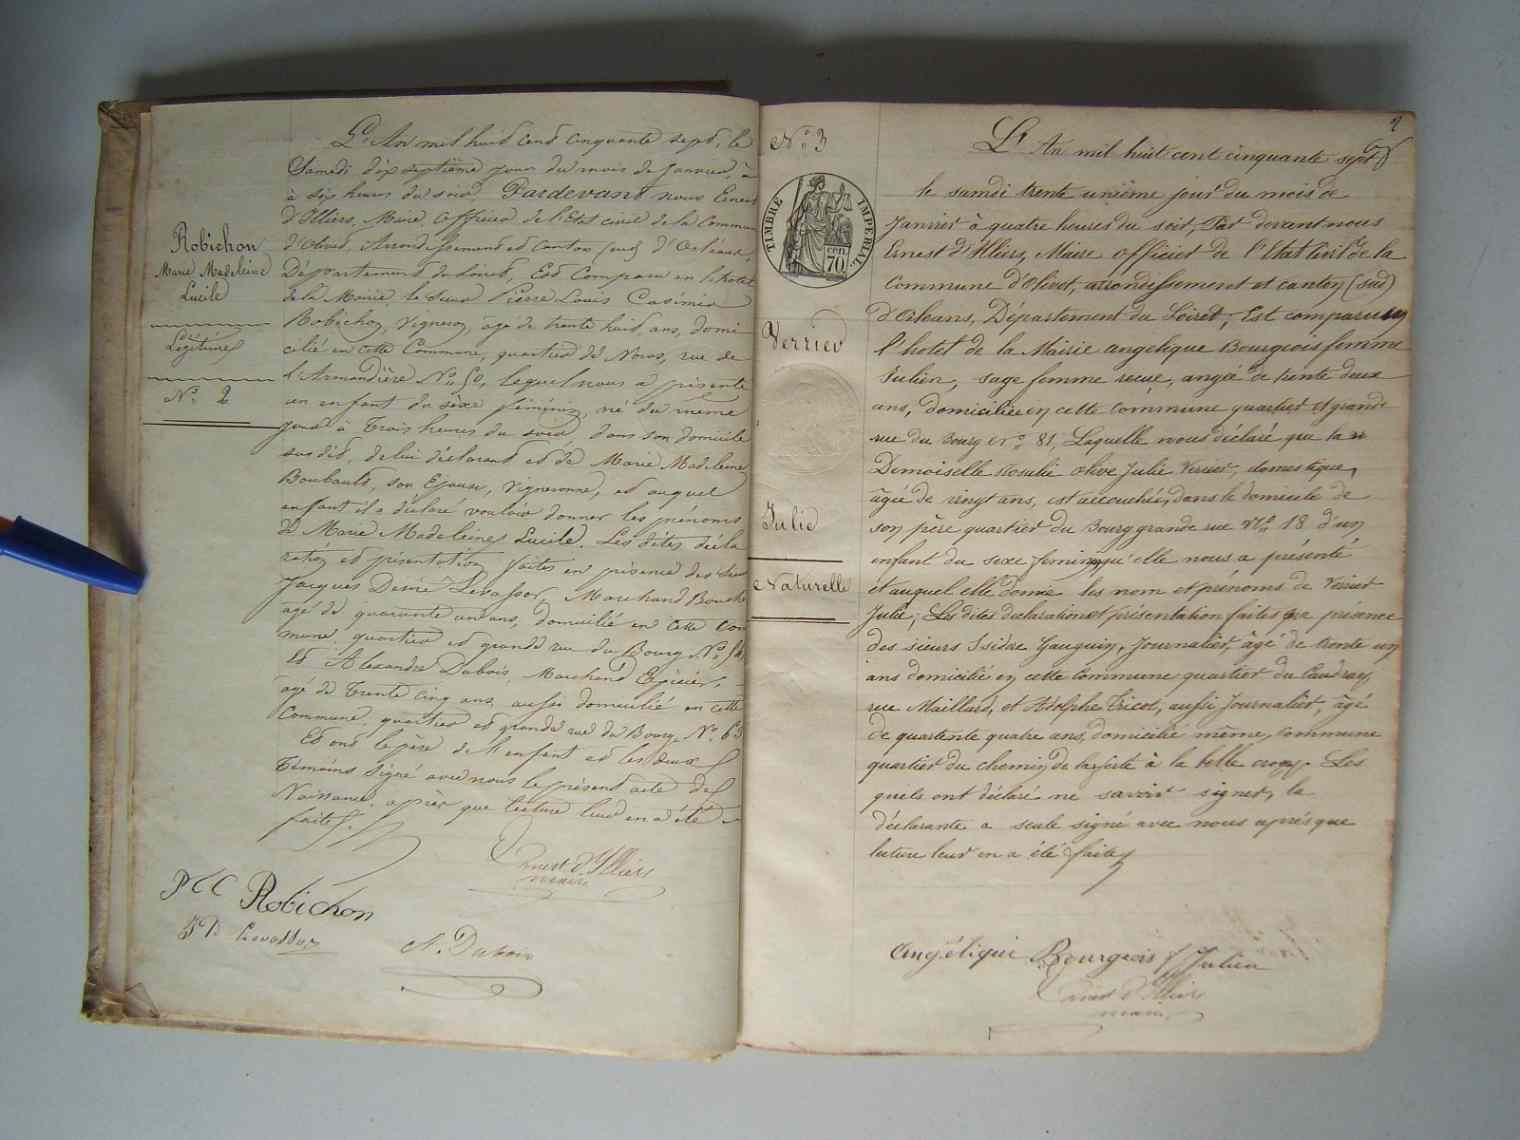 Robichon
Marie Madeleine
Lucile
Légitime
N° 2
L'An mil huit cent cinquante sept, le
Samedi dix septième jour du mois de Janvier, à
à six heures du soir, Pardevant nous Ernest
d'Illiers, Maire, officier de l'Etat civil de la Commune
d'Olivet, Arrondissement et Canton (sud) d'Orléans,
Département du Loiret, Est comparu en l'hotel
de la Mairie, le sieur Pierre Louis Casimir
Robichon, Vigneron, âgé de trente huit ans, domi
cilié en cette Commune, quartier de Noras, rue de
l'Armandière N° 50, lequel nous a présenté
un enfant du sèxe féminin, né du même
jour à trois heures du soir, dans son domicile
susdit, de lui déclarant et de Marie Madeleine
Boubault, son Epouse, Vigneronne, et auquel
enfant il a déclaré vouloir donner les prénoms
de Marie Madeleine Lucile. Les dites décla
ration et présentation faites en présence des sieurs
Jacques Desiré Levassor, Marchand Boucher
agé de quarante un ans, domicilié en cette com
mune, quartier et grande rue du Bourg N°
Et Alexandre Dubois, Marchand Epicier,
agé de trente cinq ans, aussi domicilié en cette
Commune, quartier et grande rue du Bourg N° 63
Et ont le père de l'enfant et les deux
témoins signé avec nous le présent acte de
Naissance, après que lecture leur en a été
faite.
Ernest d'Illiers
maire
P L C Robichon
J D Levassor
A. Dubois
2
N° 3
TIMBRE IMPERIAL
CEN. 70
Verrier
Julie
Naturelle
L'An mil huit cent cinquante sept
le samdi trente unième jour du mois de
Janvier à quatre heures du soir, Par devant nous
Ernest d'Illiers, Maire officier de l'Etat Civil de la
Commune d'Olivet, arrondissement et canton (sud)
d'Orleans, Département du Loiret, Est comparu en
l'hotel de la Mairie angelique Bourgeois femme
Julien, sage femme recue, angée de trente deux
ans, domiciliée en cette commune quartier et grande
rue du Bourg N° 81, Laquelle nous déclaré que la
Demoiselle Rosalie Olive Julie Verrier, domestique,
âgée de vingt ans, est accouchée, dans le domicile de
son père quartier du Bourg grande rue N° 18 d'un
enfant du sexe feminin qu'elle nous a présenté
et auquel elle donne les nom et prénoms de Verrier
Julie, Les dites declaration et présentation faites en présence
des sieurs Isidore Gauguin, Journalier, âgé de trente un
ans domicilié en cette commune quartier du Caudray,
rue Maillard, et Adolphe Tricot, aussi Journalier, âgé
de quarente quatre ans, domicilié même, commune
quartier du chemin de laferté à la belle croix. Les
quels ont déclaré ne savoir signer, la
déclarante a seule signé avec nous après que
lecture leur en a été faite
Angélique Bourgeois f Julien
Ernest d'Illiers
maire